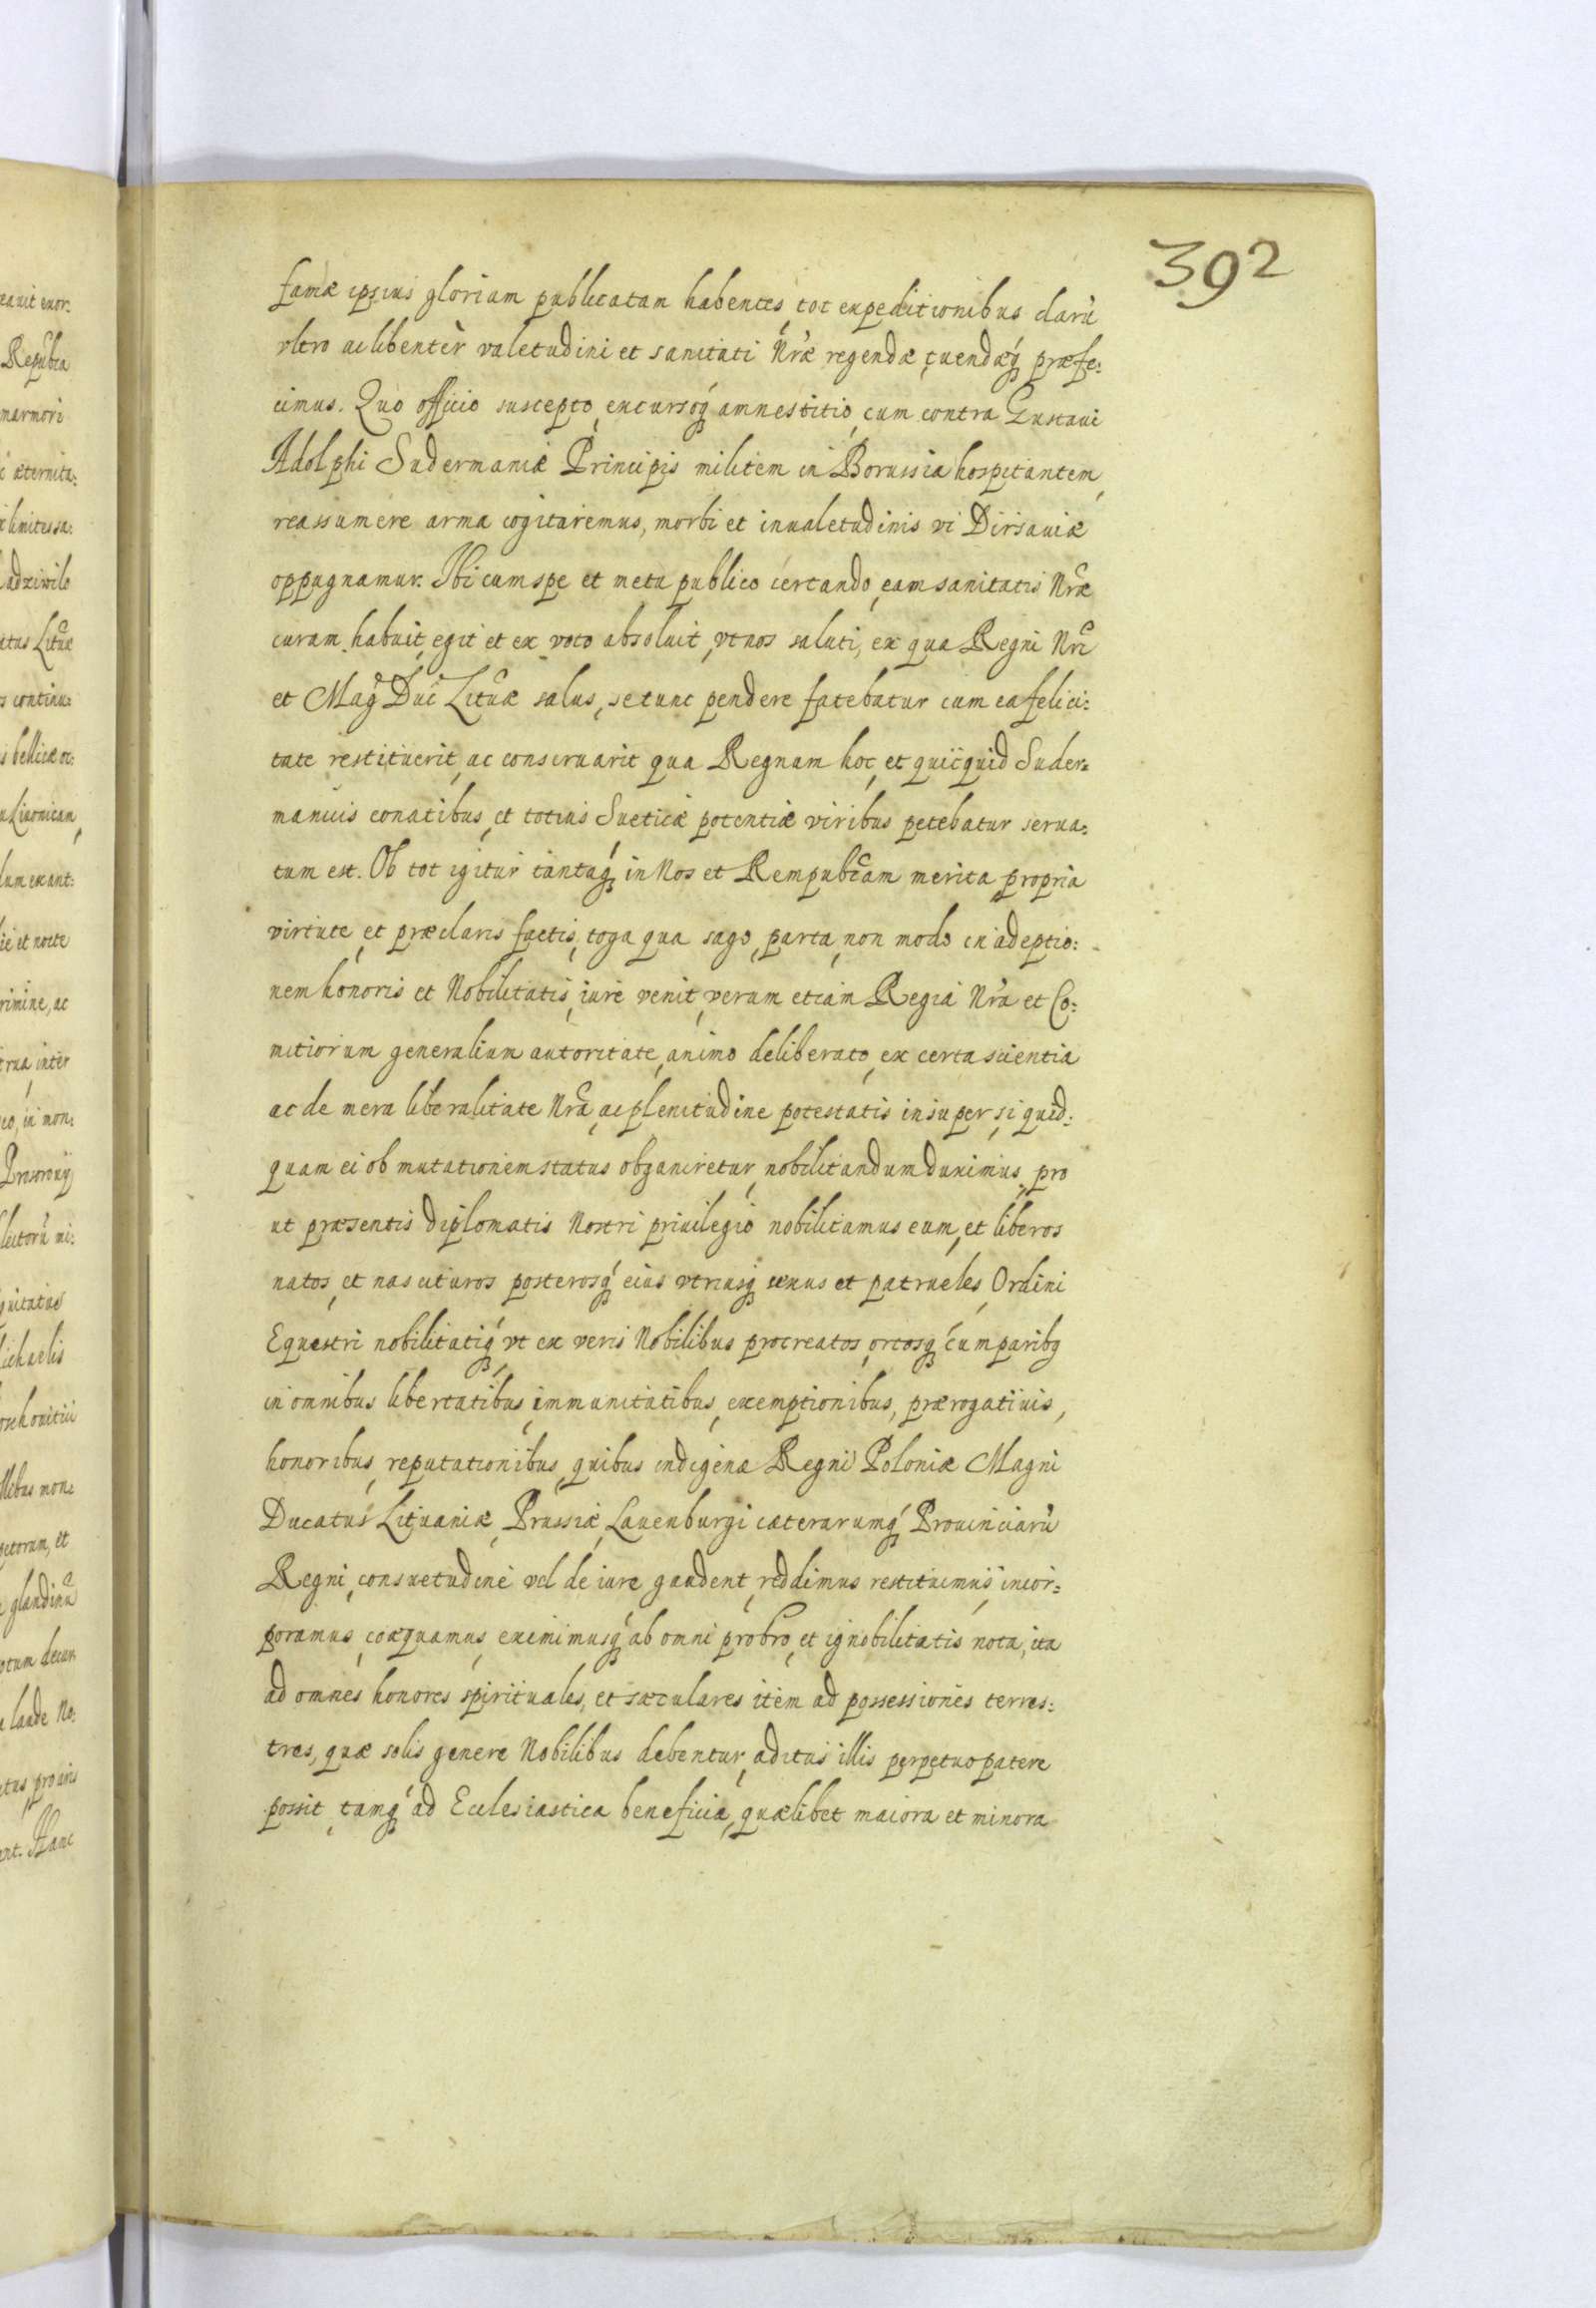 392
famæ ipsius gloriam publicatam habentes, tot expeditionibus clarũ
vltro ac libenter valetudini et sanitati Nræ regendæ, tuendæq́ præfe:
cimus. Quo officio suscepto, excursoq́ amnestitio, cum contra Gustaui
Adolphi Sudermaniæ Principis militem in Borussia hospitantem,
reassumere arma cogitaremus, morbi et inualetudinis vi Dirsauiæ
oppugnamur. Ibi cum spe et metu publico certando, eam sanitatis Nræ
curam habuit, egit et ex voto absoluit, vt nos saluti, ex qua Regni Nri
et Mag Duc Lituæ salus, se tunc pendere fatebatur cum ea felici:
tate restituerit, ac conseruarit qua Regnum hoc, et quicquid Suder:
manicis conatibus, et totius Sueticæ potentiæ viribus petebatur serua:
tum est. Ob tot igitur tantaq́, in Nos et Rempubcam merita propria
virtute, et præclaris factis, toga qua sago, parta, non modo in adeptio:
nem honoris et Nobilitatis, iure venit, verum etiam Regia Nra et Co:
mitiorum generalium autoritate, animo deliberato, ex certa scientia
ac de mera liberalitate Nra, ac plenitudine potestatis insuper, si quid:
quam ei ob mutationem status obganiretur, nobilitandum duximus, pro
ut præsentis diplomatis Nostri priuilegio nobilitamus eum, et liberos
natos, et nascituros posterosq́ eius vtriusq́ sexus et patrueles, Ordini
Equestri nobilitatiq́, vt ex veris Nobilibus procreatos, ortosq́ cum paribq
in omnibus libertatibus, immunitatibus, exemptionibus, prærogatiuis,
honoribus, reputationibus, quibus indigenæ Regni Poloniæ Magni
Ducatus Lituaniæ, Prussiæ, Lauenburgi cæterarumq́ Prouinciarũ
Regni, consuetudine vel de iure gaudent, reddimus restituimus, incor:
poramus, coæquamus, eximimusq́ ab omni probro, et ignobilitatis nota, ita
ad omnes honores spirituales, et sæculares item ad possessiones terres:
tres, quæ solis genere Nobilibus debentur, aditus illis perpetuo patere
possit, tamq́ ad Ecclesiastica beneficia, quælibet maiora et minora